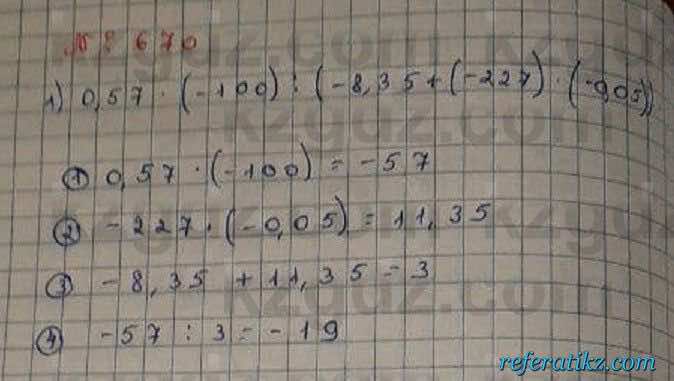 № 670
1) 0,57 · (-100) : (-8,35 + (-227) · (-0,05))
① 0,57 · (-100) = -57
② -227 · (-0,05) = 11,35
③ -8,35 + 11,35 = 3
④ -57 : 3 = -19
referatikz.com